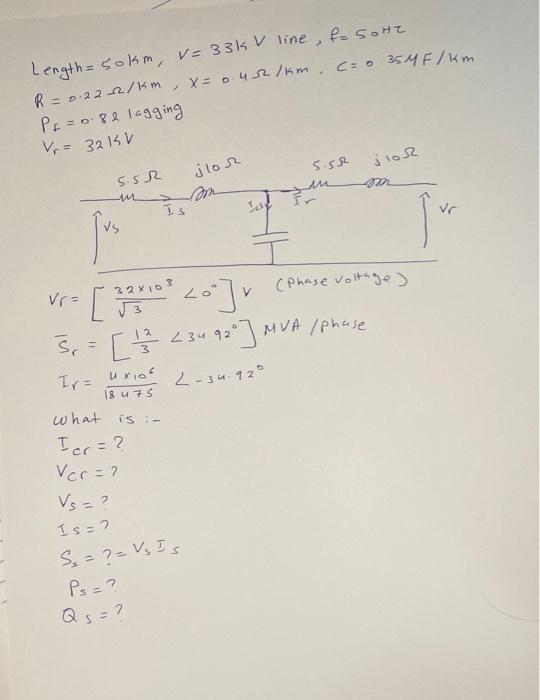 Length = 50km, V = 33kV line, f = 50Hz
R = 0.22 Ω/km, X = 0.4 Ω/km, C = 0.35 MF/km
Pf = 0.82 lagging
Vr = 32kV
5.5Ω j10Ω 5.5Ω j10Ω
Is Ics Ir
Vs Vr
Vr = [32×10³/√3 ∠0°] V (Phase Voltage)
S̅r = [12/3 ∠34.92°] MVA/phase
Ir = 4×10⁶/18475 ∠-34.92°
what is :-
Icr = ?
Vcr = ?
Vs = ?
Is = ?
Ss = ? = Vs Is
Ps = ?
Qs = ?